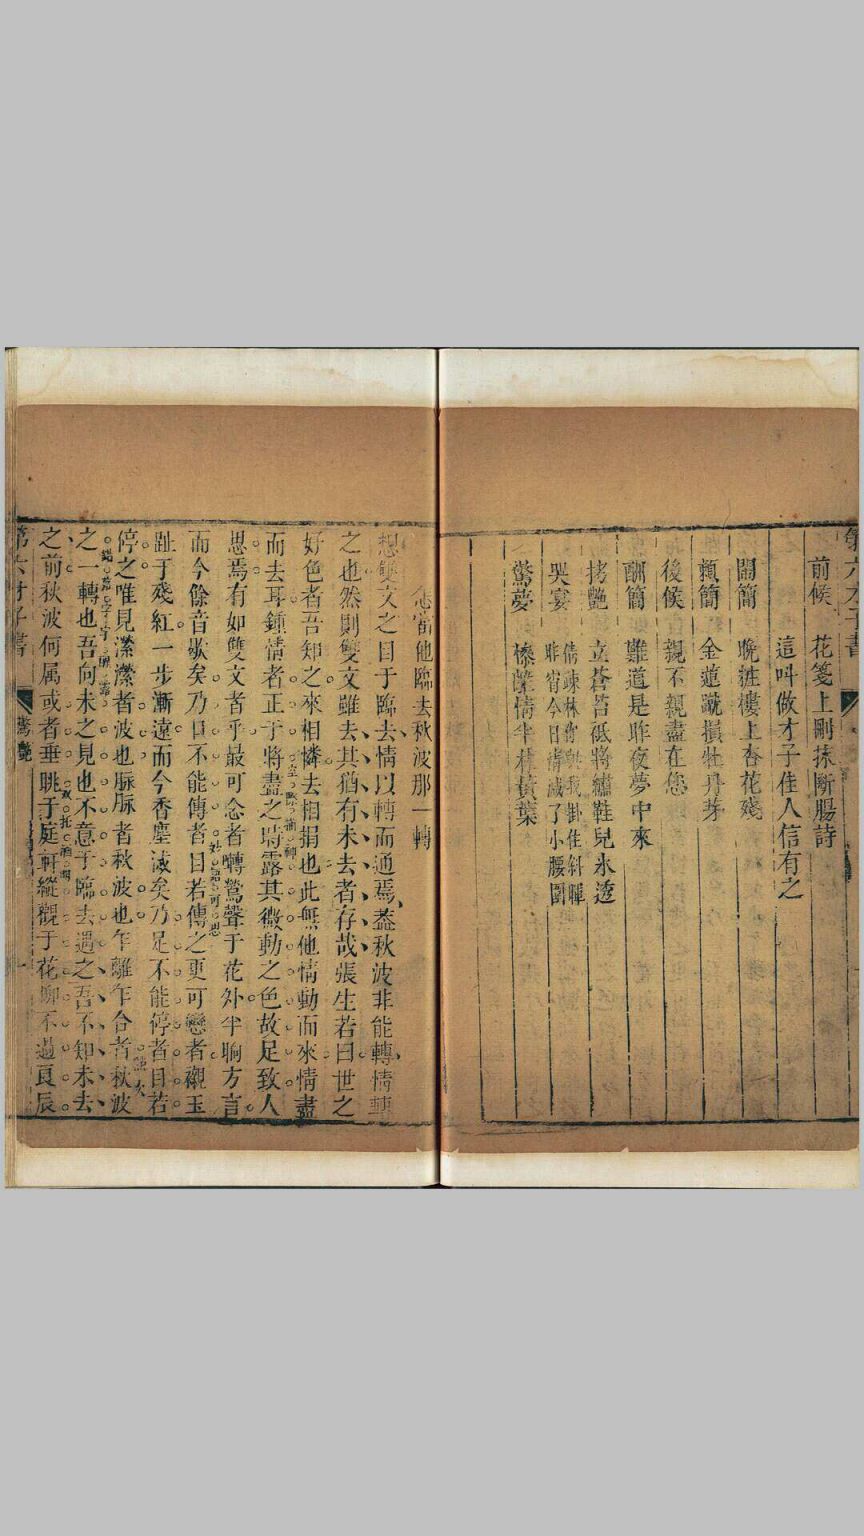 第六才子書
前候 花箋上刪抹斷腸詩
這叫做才子佳人信有之
鬧簡 晩粧樓上杏花殘
頼簡 金蓮蹴損牡丹芽
後候 親不親盡在您
酬簡 難道是昨夜夢中來
拷艶 立蒼苔砥將繡鞋兒氷透
哭宴 倩疎林你與我掛住斜暉
昨宵今日清减了小腰圍
驚夢 慘離情半林黃葉
怎當他臨去秋波那一轉
想雙文之目于臨去情以轉而通焉葢秋波非能轉情轉
之也然則雙文雖去其猶有未去者存哉張生若曰世之
好色者吾知之來相憐去相捐也此無他情動而來情盡
而去耳鍾情者正于將盡之時露其微動之色故足致人
思焉有如雙文者乎最可念者囀鶯聲于花外半晌方言
而今餘音歇矣乃口不能傳者目若傳之更可戀者襯玉
趾于殘紅一步漸遠而今香塵滅矣乃足不能停者目若
停之唯見瀠瀠者波也脈脈者秋波也乍離乍合者秋波
之一轉也吾向未之見也不意于臨去遇之吾不知未去
之前秋波何属或者垂眺于庭軒縱觀于花柳不過良辰
第六才子書 驚艶 一